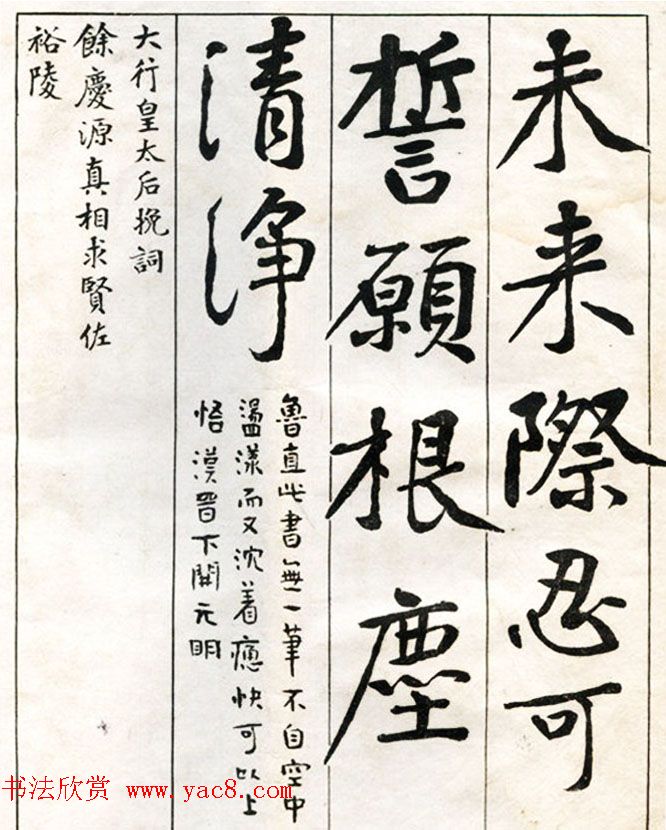 未来際忍可
誓願根塵
清浄
魯直此書無一筆不自空中
盪漾而又沈着痛快可以上
悟漢晉下開元明
大行皇太后挽詞
餘慶源真相求賢佐
裕陵
书法欣赏 www.yac8.com